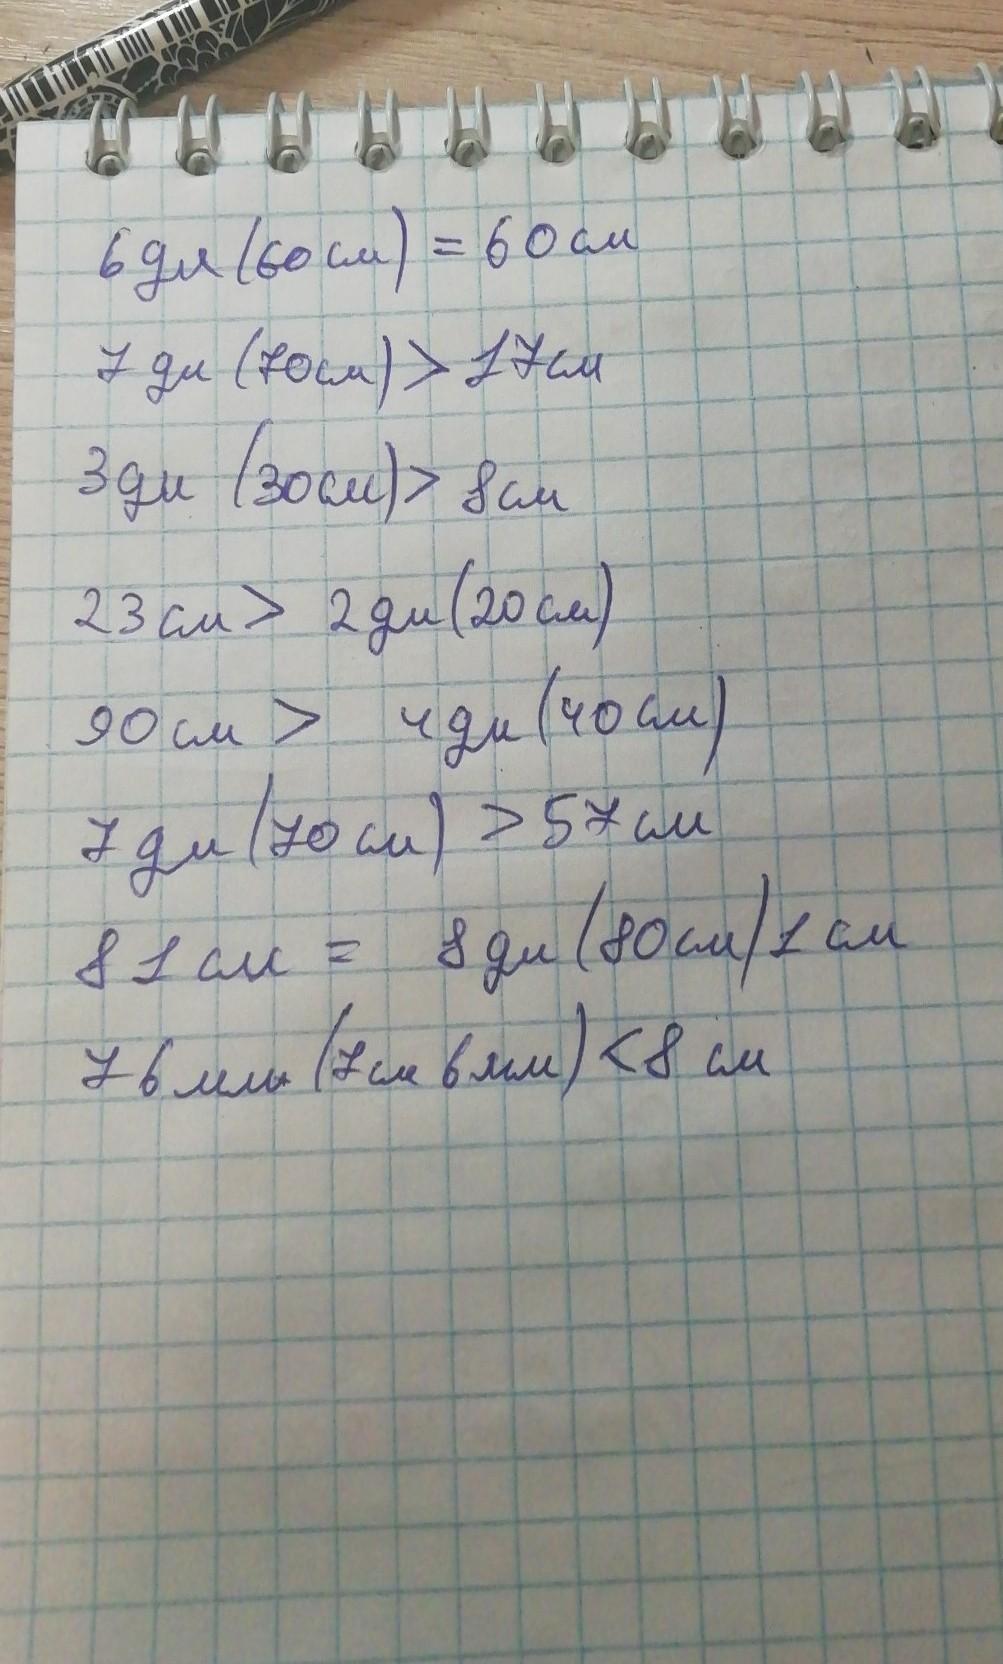 6дм(60см) = 60см
7дм (70см) > 17см
3дм (30см) > 8см
23см > 2дм(20см)
90см > 4дм(40см)
7дм(70см) > 57см
81см = 8дм(80см)1см
76мм (7см 6мм) < 8 см